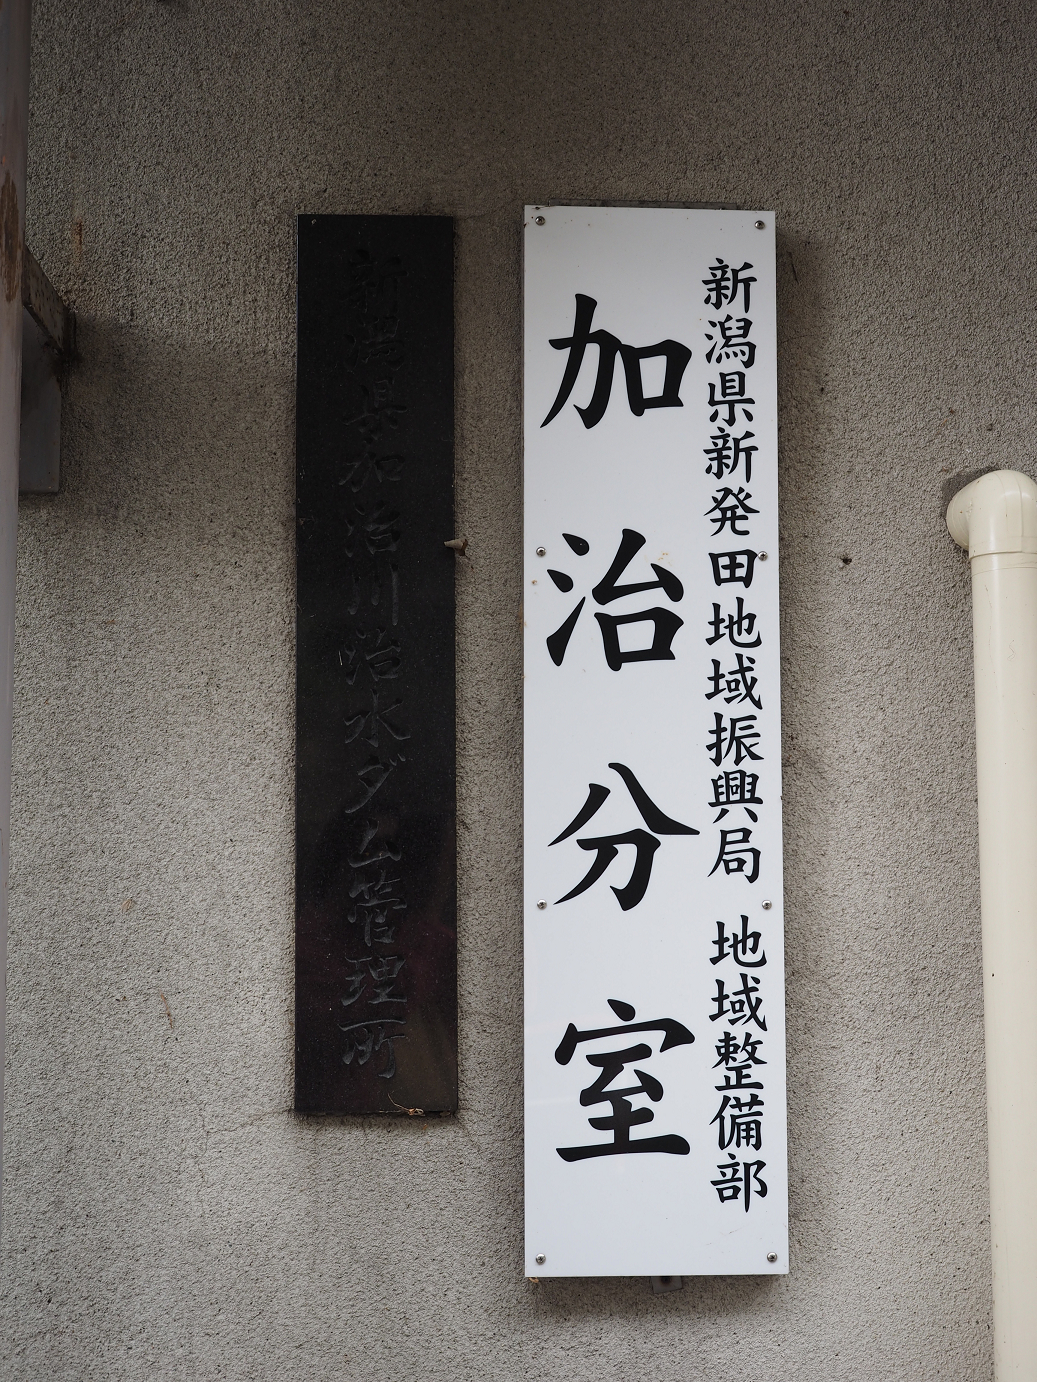 新潟県新発田地域振興局 地域整備部
加治分室
新潟県加治川治水ダム管理所